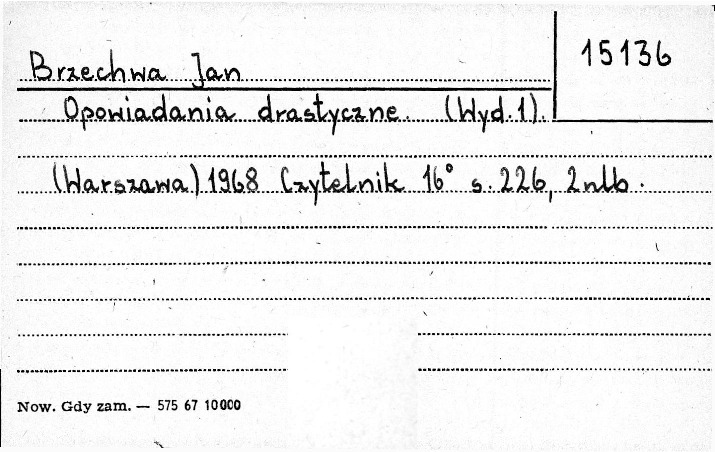 15136
Brzechwa Jan
Opowiadania drastyczne. (Wyd.1).
(Warszawa) 1968 Czytelnik 16° s. 226, 2nlb.
Now. Gdy zam. — 575 67 10000